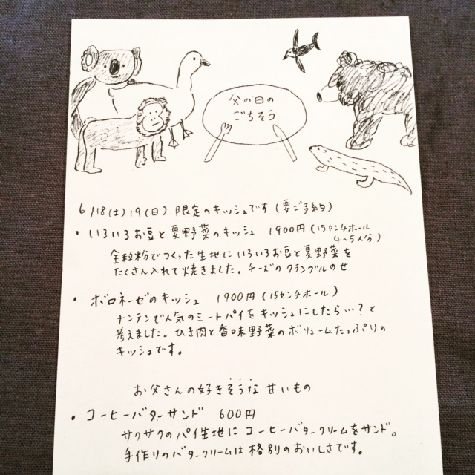 父の日の
ごちそう
6/18(土)19(日) 限定のキッシュです(要ご予約)
・いろいろお豆と夏野菜のキッシュ 1900円(15センチホール
4〜5人分)
全粒粉でつくった生地にいろいろお豆と夏野菜を
たくさん入れて焼きました。チーズのクランブルのせ
・ボロネーゼのキッシュ 1900円(15センチホール)
ナンテンで人気のミートパイをキッシュにしたらい?と
考えました。ひき肉と香味野菜のボリュームたっぷりの
キッシュです。
お父さんの好きそうな せいもの
・コーヒーバターサンド 600円
サクサクのパイ生地にコーヒーバタークリームをサンド。
手作りのバタークリームは格別のおいしさです。